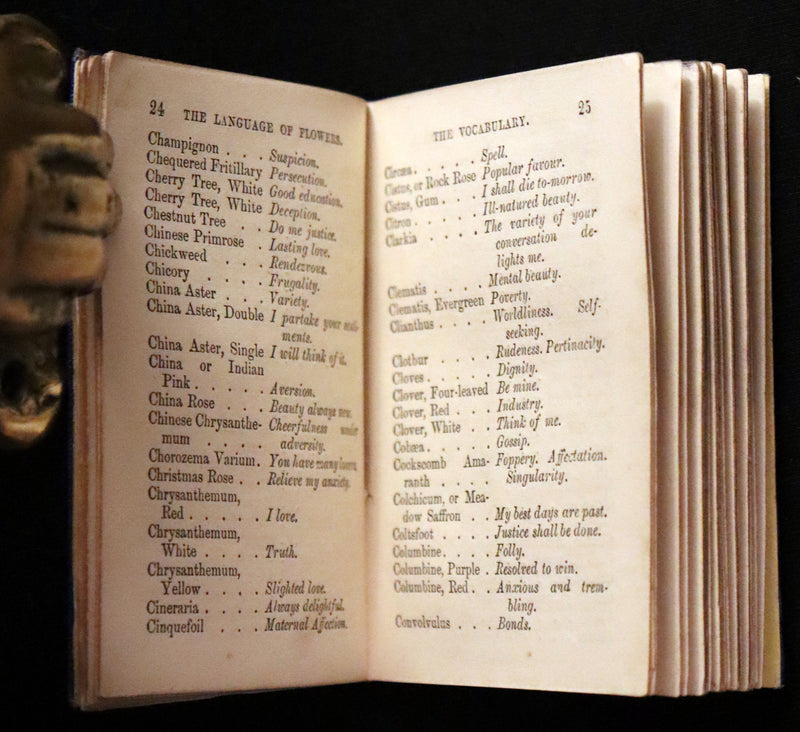 24 THE LANGUAGE OF FLOWERS.
Champignon . . . Suspicion.
Chequered Fritillary Persecution.
Cherry Tree, White Good education.
Cherry Tree, White Deception.
Chestnut Tree . . Do me justice.
Chinese Primrose . Lasting love.
Chickweed . . . Rendezvous.
Chicory . . . . Frugality.
China Aster . . . Variety.
China Aster, Double I partake your senti-
ments.
China Aster, Single I will think of it.
China or Indian
Pink . . . . . Aversion.
China Rose . . . Beauty always new.
Chinese Chrysanthe- Cheerfulness under
mum . . . . adversity.
Chorozema Varium. You have many lovers.
Christmas Rose . . Relieve my anxiety.
Chrysanthemum,
Red . . . . . I love.
Chrysanthemum,
White . . . . Truth.
Chrysanthemum,
Yellow . . . . Slighted love.
Cineraria . . . . Always delightful.
Cinquefoil . . . Maternal Affection.
THE VOCABULARY. 25
Circæa . . . . . Spell.
Cistus, or Rock Rose Popular favour.
Cistus, Gum . . . I shall die to-morrow.
Citron . . . . . Ill-natured beauty.
Clarkia . . . . The variety of your
conversation de-
lights me.
Clematis . . . . Mental beauty.
Clematis, Evergreen Poverty.
Clianthus . . . . Worldliness. Self-
seeking.
Clotbur . . . . Rudeness. Pertinacity.
Cloves . . . . . Dignity.
Clover, Four-leaved Be mine.
Clover, Red . . . Industry.
Clover, White . . Think of me.
Cobæa . . . . . Gossip.
Cockscomb Ama- Foppery. Affectation.
ranth . . . . Singularity.
Colchicum, or Mea-
dow Saffron . . My best days are past.
Coltsfoot . . . . Justice shall be done.
Columbine . . . . Folly.
Columbine, Purple . Resolved to win.
Columbine, Red . . Anxious and trem-
bling.
Convolvulus . . . Bonds.